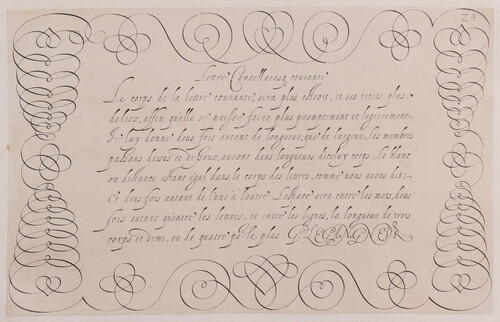 24
Lettre Cancellaresq courante
Le corps de la lettre courante, sera plus estroit, et ses traits plus
deliez, affin quelle se puisse faire plus promptement et legierement.
Je luy donne deus fois autant de longueur, que de largeur. Les membres
passans dessus et desous, auront deus longueurs diceluy corps. Le blanc
ou distance estant égal dans le corps des letres, comme nous avons dit:
Et deus fois autant de l'une à l'autre. L'espace sera entre les mots, deus
fois autant qu'entre les lettres, et entre les lignes, la longueur de trois
corps et demi, ou de quatre po le plus.